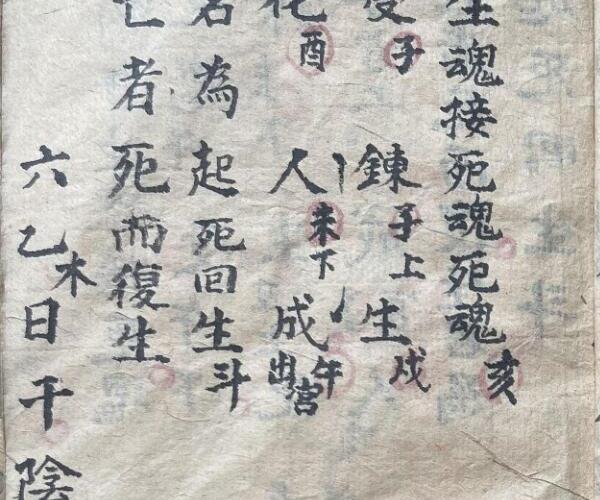 生魂接死魂死魂亥
受子鍊子上生戌
化酉人未下成午出宮
名為起死回生斗
亡者死而復生
六乙木日干陰